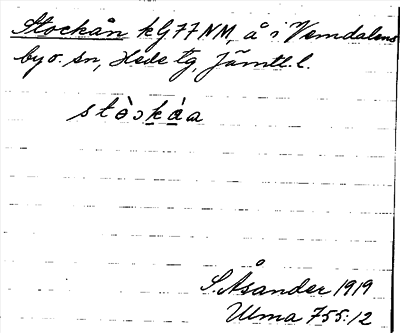 Stockån k G77NM, å i Vemdalens
by o. sn, Hede tg, Jämtl. l.
stòɔkàa
S. Åsander 1919
Ulma 755:12